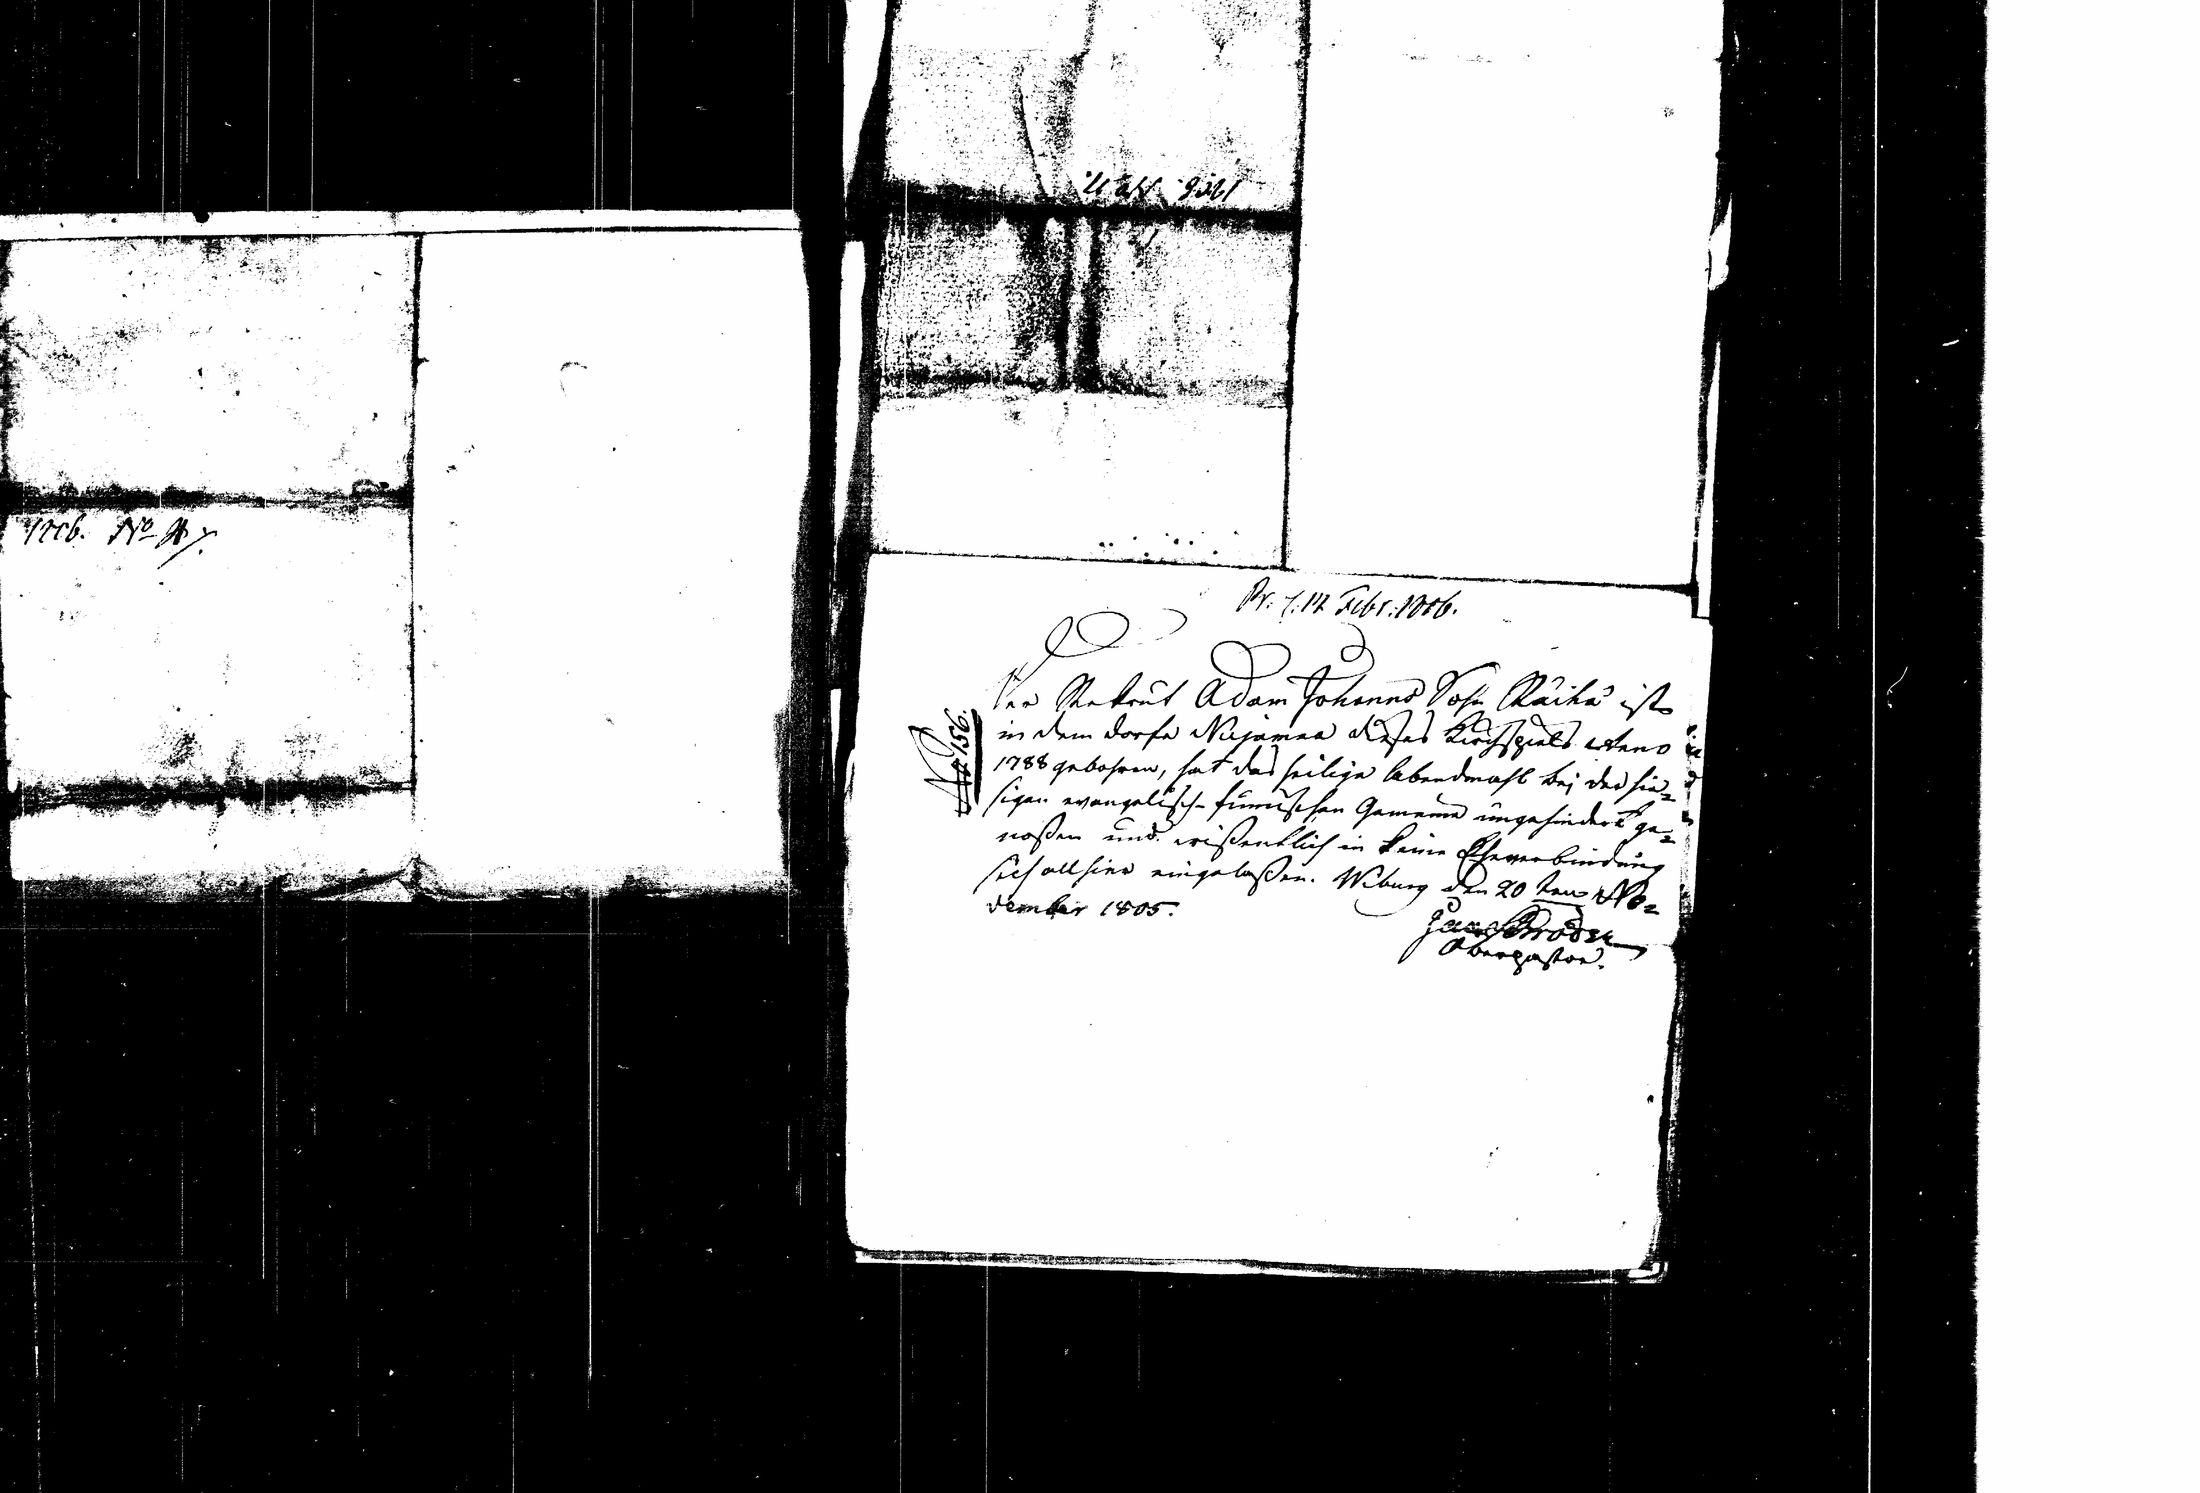 1806. No
1806. No
Pr: d: 14 Febr: 1806.
No 156.
Der Rekrut Adam Johanns Sohn Räihä ist
in dem dorfe Nuijamaa dieses Kirchspiels Anno
1788 gebohren, hat das heilige Abendmahl bei der hie-
sigen evangelisch-finnischen Gemeine ungehindert ge-
noßen und wißentlich in keine Eheverbindung
sich allhier eingelaßen. Wiburg den 20 ten No-
vember 1805.
Oberpastor.